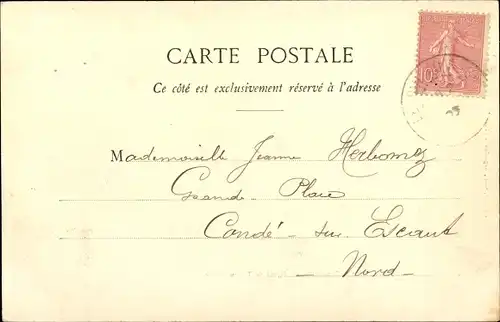 10
CARTE POSTALE
Ce côté est exclusivement réservé à l'adresse
Mademoiselle Jeanne Herbomez
Grande Place
Condé-sur Escaut
-Nord-